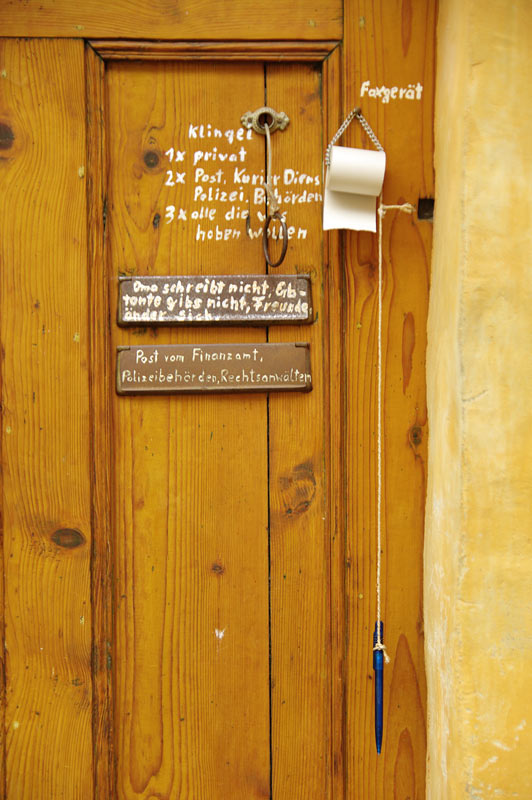 Faxgerät
Klingel
1x privat
2x Post, Kurier Diens
Polizei, Behörden
3x alle die was
haben wollen
Oma schreibt nicht, Erb-
tante gibs nicht, Freunde
änder sich.
Post vom Finanzamt,
Polizeibehörden, Rechtsanwälten